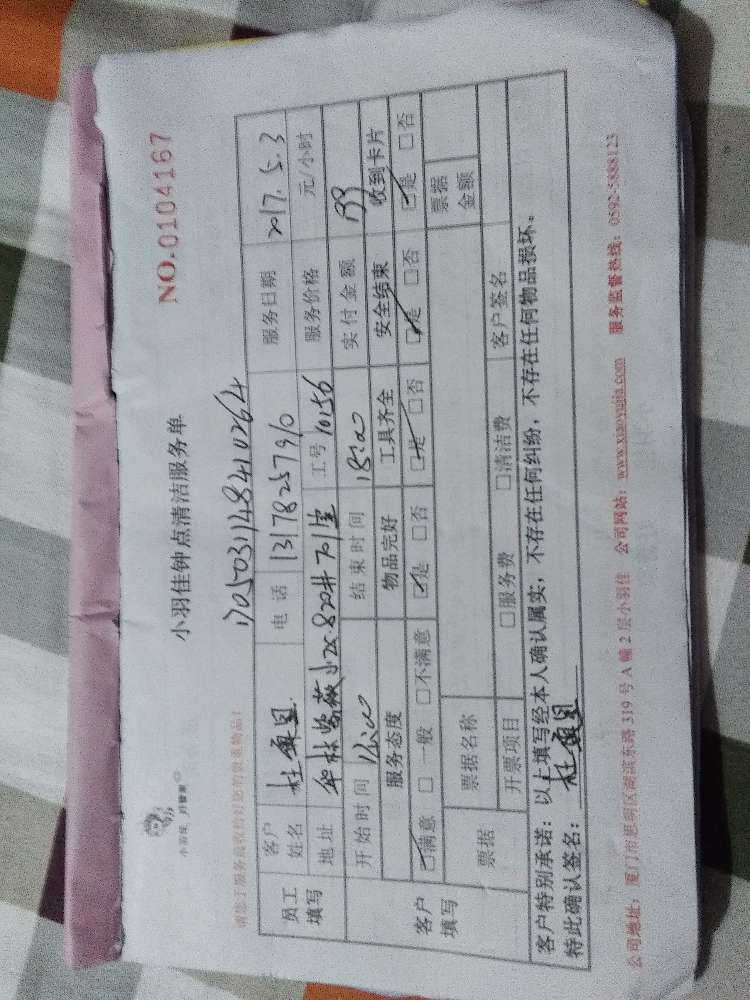 小羽佳钟点清洁服务单
NO.0104167
1705031148410264
员工填写 客户姓名 电话 13178257910 服务日期 2017.5.3
地址 工号 10156 服务价格 元/小时
开始时间 结束时间 18:00 实付金额
客户填写 服务态度 物品完好 工具齐全 安全结束 收到卡片
☑满意 □一般 □不满意 ☑是 □否 ☑是 □否 ☑是 □否 ☑是 □否
票据 票据名称 票据金额
开票项目 □服务费 □清洁费 客户签名
客户特别承诺：以上填写经本人确认属实，不存在任何纠纷，不存在任何物品损坏。
特此确认签名：
公司地址：厦门市思明区湖滨东路319号A幢2层小羽佳 公司网站：www.xiaoyujia.com 服务监督热线：0592-5888123